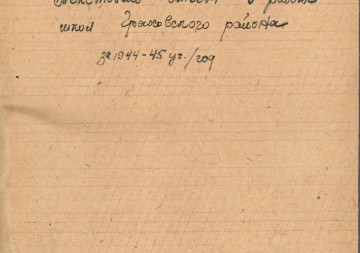 Текстовый отчет о работе
школ Грязовского района
за 1944-45 уч./год